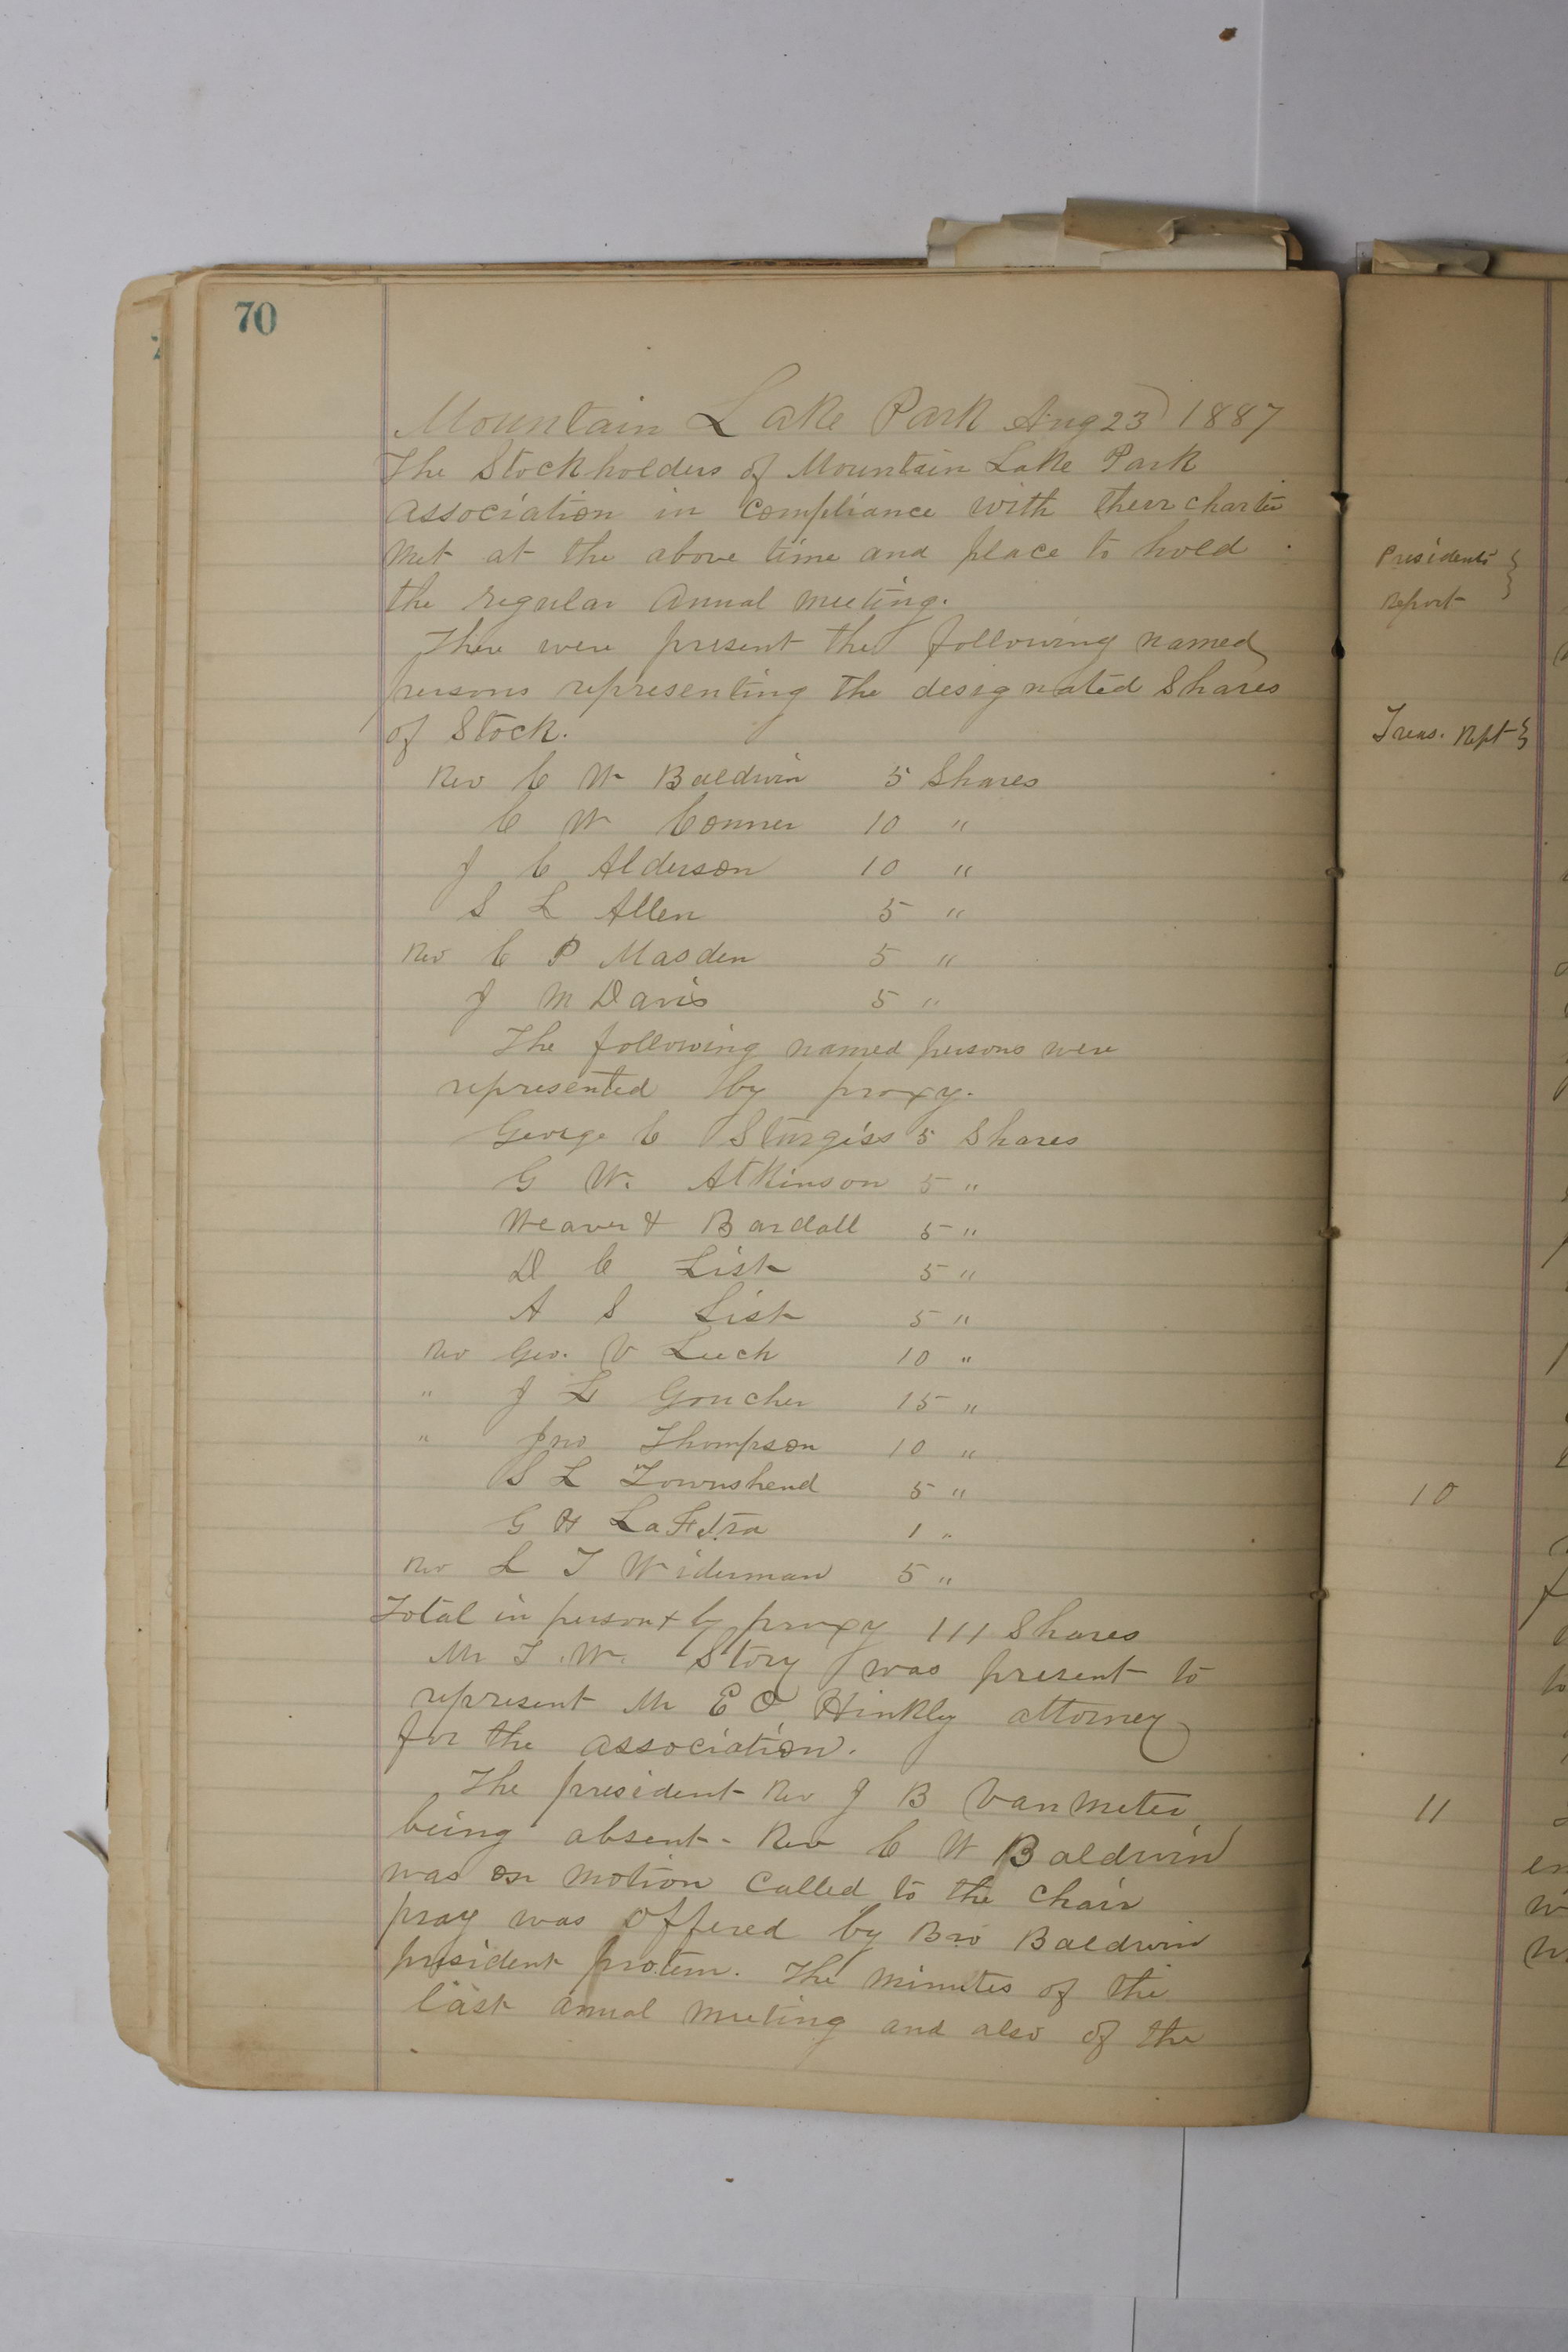 70
Mountain Lake Park Aug 23 1887
The Stockholders of Mountain Lake Park
Association in compliance with their charter
met at the above time and place to hold
the regular annual meeting.
There were present the following named
persons representing the designated Shares
of Stock.
Rev C W Baldwin 5 Shares
C W Conner 10 "
J C Alderson 10 "
S L Allen 5 "
Rev C P Masden 5 "
J M Davis 5 "
The following named persons were
represented by proxy.
George C Sturgiss 5 Shares
G W. Atkinson 5 "
Weaver & Bardall 5 "
D C List 5 "
A S List 5 "
Rev Geo. V Leech 10 "
" J F Goucher 15 "
" Jno Thompson 10 "
S L Townshend 5 "
G H LaFetra 1 "
Rev L T Widerman 5 "
Total in person & by proxy 111 Shares
Mr T. W. Story was present to
represent Mr E O Hinkly attorney
for the association.
The president Rev J B Van Meter
being absent - Rev C W Baldwin
was on motion called to the chair
pray was offered by Bro Baldwin
president protem. The minutes of the
last annual meeting and also of the
Presidents
Report
Treas. Rept
10
11